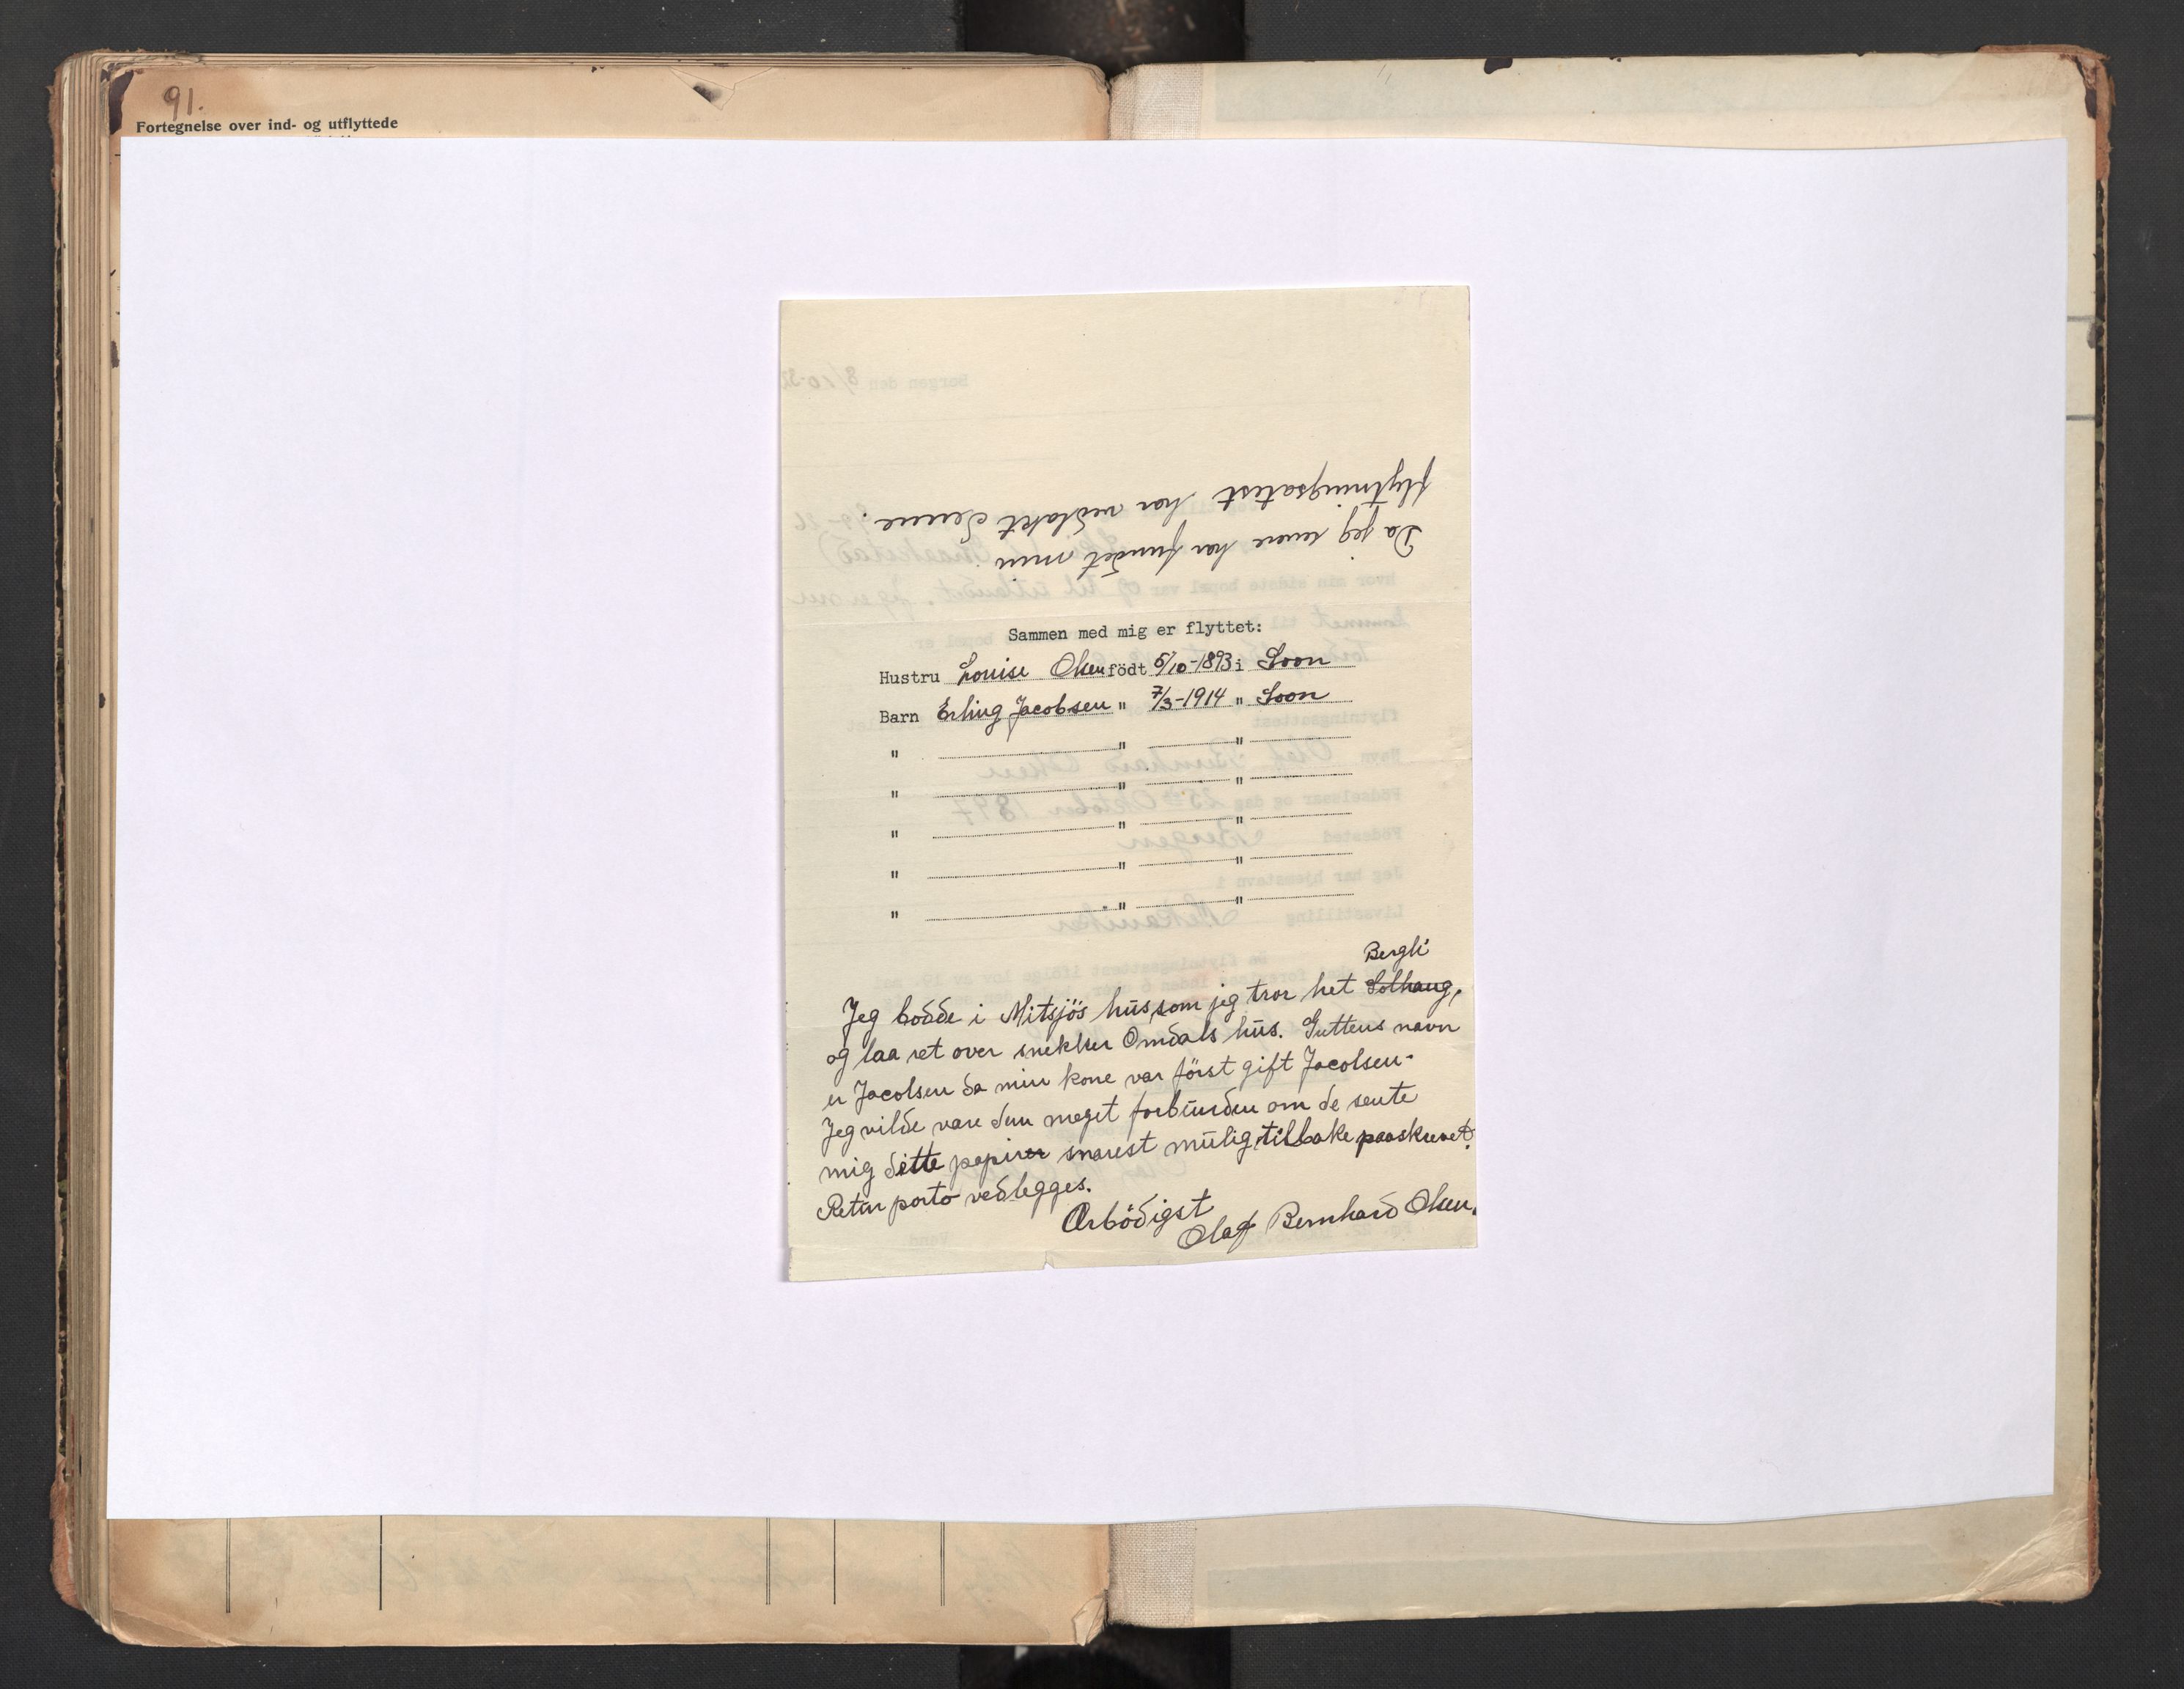 91.
Fortegnelse over ind- og utflyttede
Da jeg senere har fundet min
flytningsatest har vedlakt denne.
Sammen med mig er flyttet:
Hustru Louise Olsen födt 5/10-1893 i Soon
Barn Erling Jacobsen " 7/3-1914 " Soon
" " "
" " "
" " "
" " "
" " "
Bergli
Jeg bodde i Mitsjös hus, som jeg tror het Solhaug,
og laa ret over snekker Omdals hus. Guttens navn
er Jacobsen da min kone var först gift Jacobsen-
Jeg vilde være dem meget forbunden om de sente
mig ditte papirer snarest mulig tilbake paaskrevet.
Retur porto vedlegges.
Ærbödigst
Olaf Bernhard Olsen.